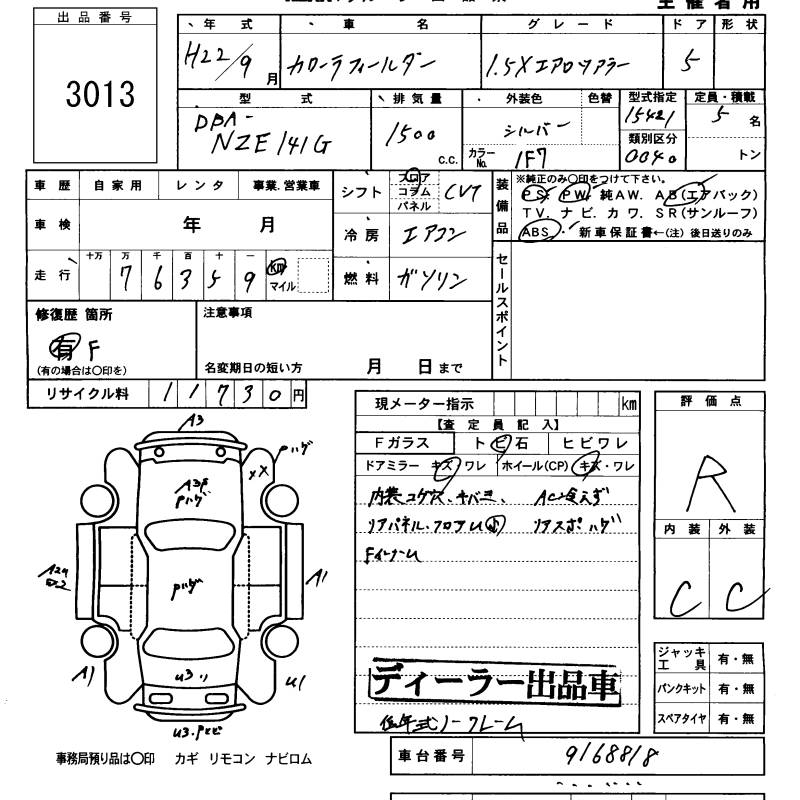 出品番号
3013
年式 車名 グレード ドア 形状
H22/9月 カローラフィールダー 1.5Xエアロツアラー 5
型式 排気量 外装色 色替 型式指定 定員・積載
DBA-
NZE141G 1500 c.c. シルバー 15421 5 名
類別区分
カラーNo. 1F7 0040 トン
車歴 自家用 レンタ 事業.営業車
シフト フロア コラム パネル CVT
車検 年 月
冷房 エアコン
走行 十万 万 千 百 十 一
7 6 3 5 9 km マイル
燃料 ガソリン
装備品
※純正のみ〇印をつけて下さい。
PS. PW. 純AW. AB(エアバック)
TV. ナビ. カワ. SR(サンルーフ)
ABS. 新車保証書←(注) 後日送りのみ
セールスポイント
修復歴 箇所
有 F
(有の場合は〇印を)
注意事項
名変期日の短い方 月 日まで
リサイクル料 1 1 7 3 0 円
現メーター指示 km
【査定員記入】
Fガラス トビ石 ヒビワレ
ドアミラー キズ・ワレ ホイール(CP) キズ・ワレ
内装コゲアス、キバミ、 AC冷えず
リアパネル・フロアU リアスポ ハゲ
ディーラー出品車
低年式ノークレーム
評価点
R
内装 外装
C C
ジャッキ工具 有・無
パンクキット 有・無
スペアタイヤ 有・無
A3
Pハゲ
XX
Pハゲ
Pハゲ
A1
A1
U1
U3
事務局預り品は〇印 カギ リモコン ナビロム
車台番号 9168818